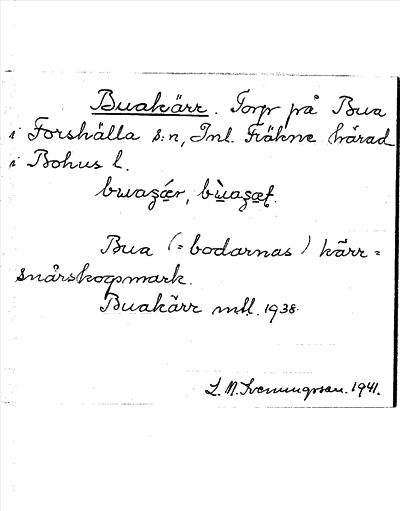 Buakärr. Torp på Bua
i Forshälla s:n, Inl. Fräkne härad
i Bohus l.
Bua (= bodarnas) kärr =
snårskogsmark.
Buakärr mtl. 1938.
1941.